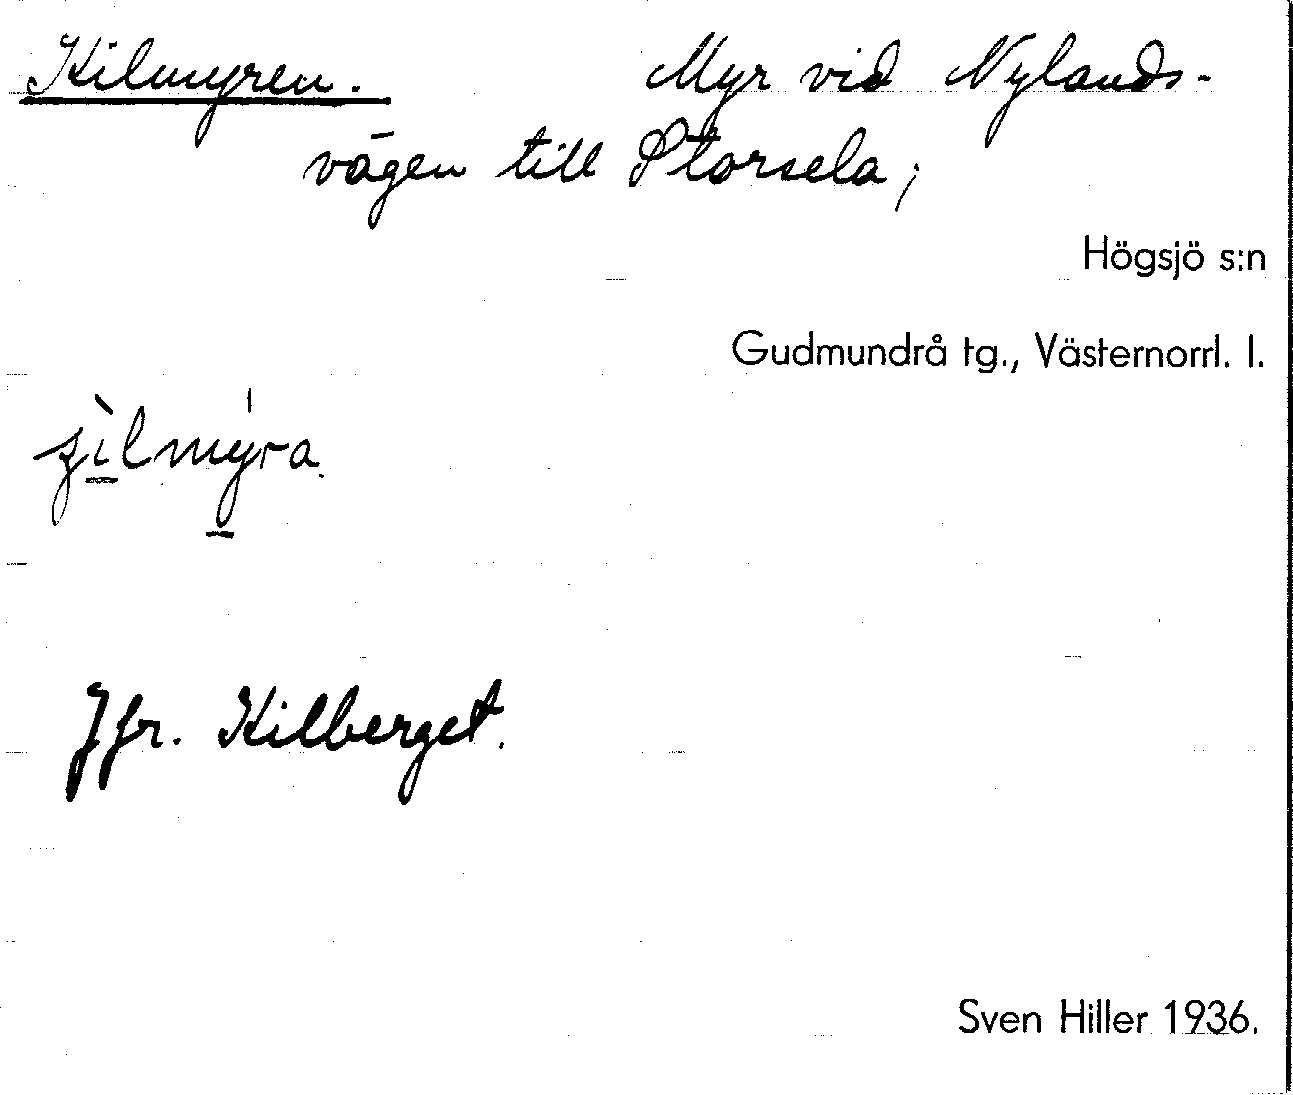 Kilmyren. Myr vid Nylands-
vägen till Storsela;
Högsjö s:n
Gudmundrå tg., Västernorrl. l.
Jfr. Kilberget.
Sven Hiller 1936.